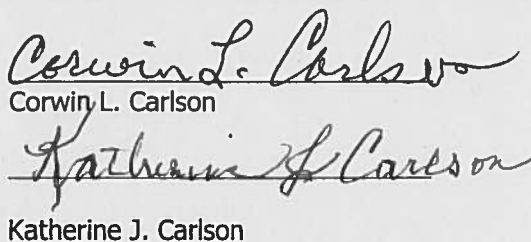 Corwin L. Carlson
Corwin L. Carlson
Katherine J. Carlson
Katherine J. Carlson